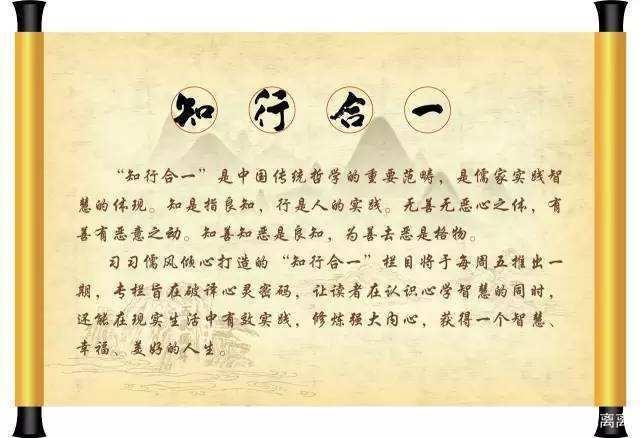 知行合一
“知行合一”是中国传统哲学的重要范畴，是儒家实践智
慧的体现。知是指良知，行是人的实践。无善无恶心之体，有
善有恶意之动。知善知恶是良知，为善去恶是格物。
习习儒风倾心打造的“知行合一”栏目将于每周五推出一
期，专栏旨在破译心灵密码，让读者在认识心学智慧的同时，
还能在现实生活中有效实践，修炼强大内心，获得一个智慧、
幸福、美好的人生。
离离